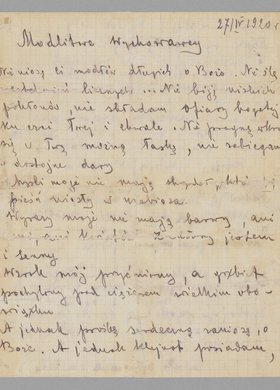 27/IV 1920 r
Modlitwa wychowawcy
Nie niosę Ci modłów długich o Boże. Nie ślę
licznych ... Nie biję niskich
pokłonów, nie składam ofiary bogatej
ku czci Twej i chwale. Nie pragnę
się w Twą możną łaskę, nie zabiegam
o dostojne dary
Myśli moje nie mają skrzydeł, które by
pieśń niosły w niebiosa.
Wyrazy moje nie mają barwy ani
woni, ani kwiatów. Znużony jestem
i senny
Wzrok mój przyćmiony, a grzbiet
pochylony pod ciężarem wielkim obo-
wiązku
A jednak prośbę serdeczną zanoszę, o
Boże. A jednak klejnot posiadam,